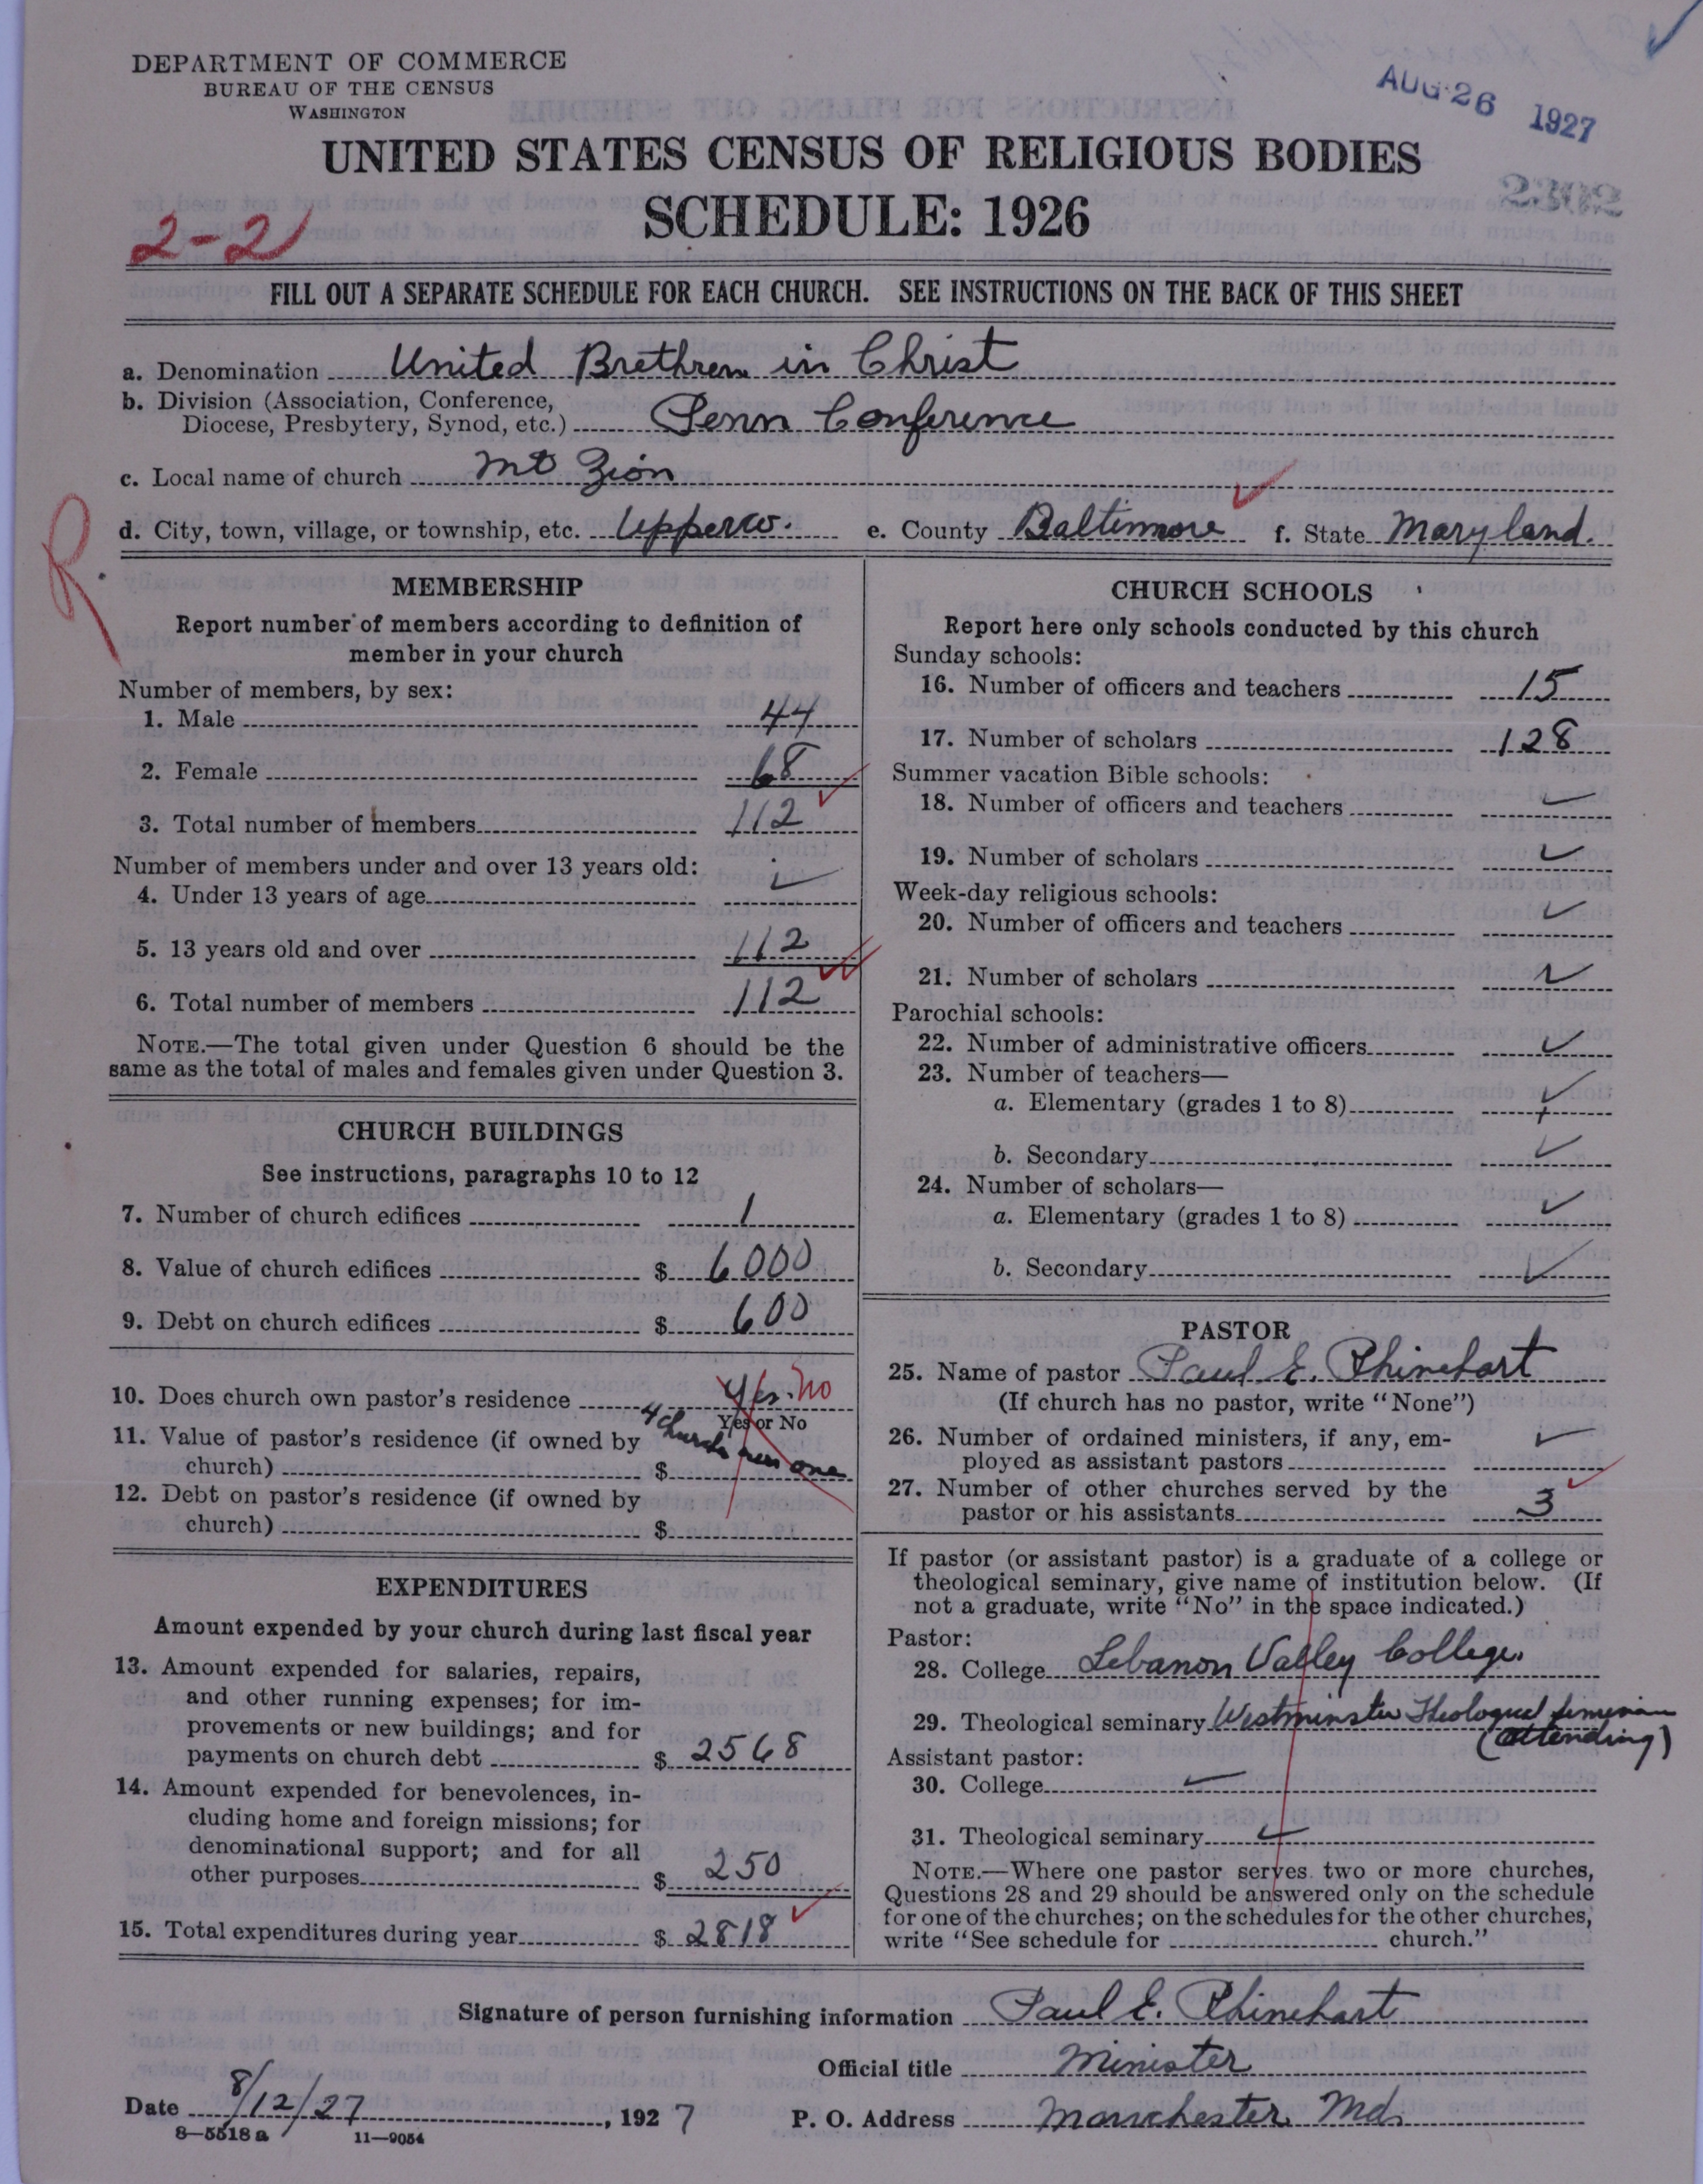 DEPARTMENT OF COMMERCE
BUREAU OF THE CENSUS
WASHINGTON
AUG 26 1927
UNITED STATES CENSUS OF RELIGIOUS BODIES
SCHEDULE: 1926
2302
2-2
FILL OUT A SEPARATE SCHEDULE FOR EACH CHURCH. SEE INSTRUCTIONS ON THE BACK OF THIS SHEET
a. Denomination United Brethren in Christ
b. Division (Association, Conference,
Diocese, Presbytery, Synod, etc.) Penn Conference
c. Local name of church Mt Zion
R
d. City, town, village, or township, etc. Upperco. e. County Baltimore f. State Maryland.
MEMBERSHIP
Report number of members according to definition of
member in your church
Number of members, by sex:
1. Male 44
2. Female 68
3. Total number of members 112
Number of members under and over 13 years old:
4. Under 13 years of age
5. 13 years old and over 112
6. Total number of members 112
NOTE.—The total given under Question 6 should be the
same as the total of males and females given under Question 3.
CHURCH BUILDINGS
See instructions, paragraphs 10 to 12
7. Number of church edifices 1
8. Value of church edifices $ 6000
9. Debt on church edifices $ 600
10. Does church own pastor's residence Yes. No
Yes or No
11. Value of pastor's residence (if owned by
church) $ 4 church own one
12. Debt on pastor's residence (if owned by
church) $
EXPENDITURES
Amount expended by your church during last fiscal year
13. Amount expended for salaries, repairs,
and other running expenses; for im-
provements or new buildings; and for
payments on church debt $ 2568
14. Amount expended for benevolences, in-
cluding home and foreign missions; for
denominational support; and for all
other purposes $ 250
15. Total expenditures during year $ 2818
CHURCH SCHOOLS
Report here only schools conducted by this church
Sunday schools:
16. Number of officers and teachers 15
17. Number of scholars 128
Summer vacation Bible schools:
18. Number of officers and teachers
19. Number of scholars
Week-day religious schools:
20. Number of officers and teachers
21. Number of scholars
Parochial schools:
22. Number of administrative officers
23. Number of teachers—
a. Elementary (grades 1 to 8)
b. Secondary
24. Number of scholars—
a. Elementary (grades 1 to 8)
b. Secondary
PASTOR
25. Name of pastor Paul E. Rhinehart
(If church has no pastor, write "None")
26. Number of ordained ministers, if any, em-
ployed as assistant pastors
27. Number of other churches served by the
pastor or his assistants 3
If pastor (or assistant pastor) is a graduate of a college or
theological seminary, give name of institution below. (If
not a graduate, write "No" in the space indicated.)
Pastor:
28. College Lebanon Valley College.
29. Theological seminary Westminster Theological Seminary
(attending)
Assistant pastor:
30. College
31. Theological seminary
NOTE.—Where one pastor serves two or more churches,
Questions 28 and 29 should be answered only on the schedule
for one of the churches; on the schedules for the other churches,
write "See schedule for church."
Signature of person furnishing information Paul E. Rhinehart
Official title Minister
Date 8/12/27, 1927 P. O. Address Manchester Md.
8—5518 a 11—9054